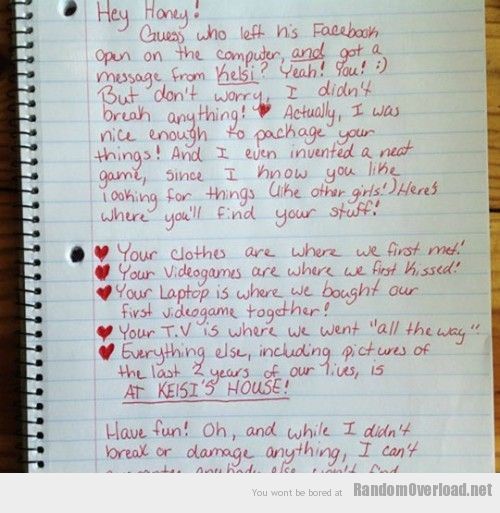 Hey Honey!
Guess who left his Facebook
open on the computer, and got a
message from Kelsi? Yeah! You! :)
But don't worry, I didn't
break anything! ♥ Actually, I was
nice enough to package your
things! And I even invented a neat
game, since I know you like
looking for things (like other girls!) Here's
where you'll find your stuff!
♥ Your clothes are where we first met!
♥ Your videogames are where we first kissed!
♥ Your Laptop is where we bought our
first videogame together!
♥ Your T.V is where we went "all the way"
♥ Everything else, including pictures of
the last 2 years of our lives, is
AT KELSI'S HOUSE!
Have fun! Oh, and while I didn't
break or damage anything, I can't
anybody else
You wont be bored at RandomOverload.net